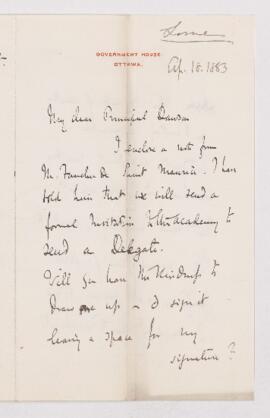 Lorne
GOVERNMENT HOUSE
OTTAWA.
Ap. 18. 1883
My dear Principal Dawson
I enclose a note from
Mr. Faucher de Saint Maurice. I have
told him that we will send a
formal Invitation to the Academy to
send a Delegate.
Will you have the Kindness to
draw one up - & sign it
leaving a space for my
signature?